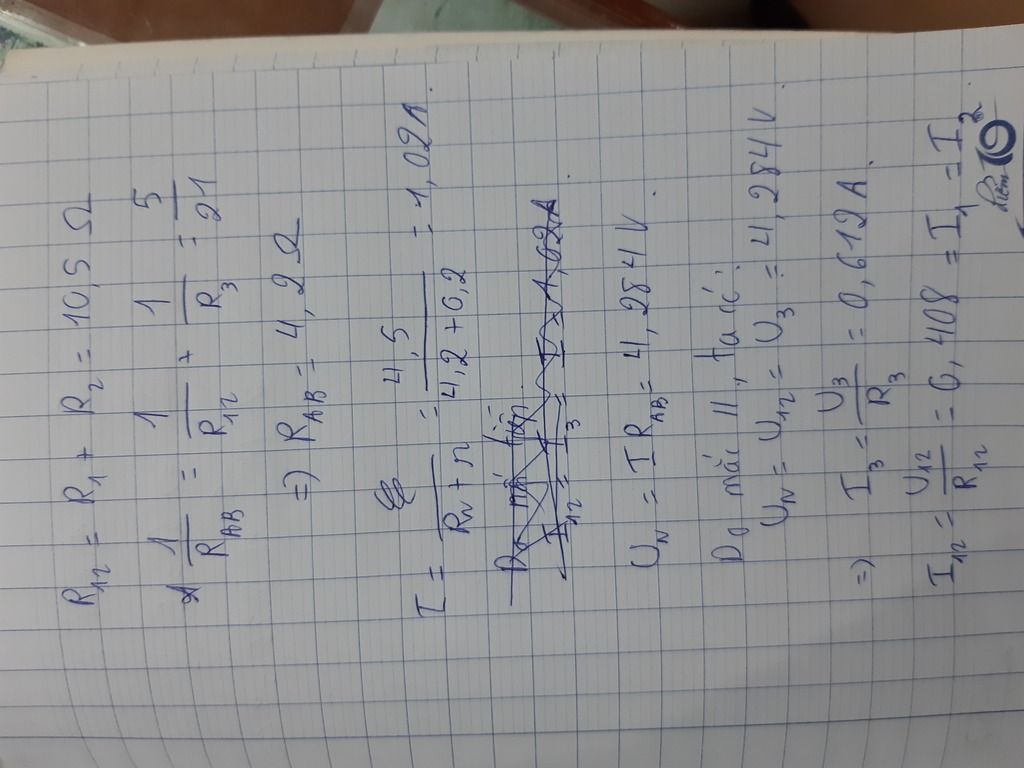 R₁₂ = R₁ + R₂ = 10,5 Ω
1/R_AB = 1/R₁₂ + 1/R₃ = 5/21
=) R_AB = 4,2 Ω
I = ℰ/(R_N + r) = 4,5/(4,2+0,2) = 1,02A.
I₁₂ = I₃ = I = 1,02A
U_N = I R_AB = 4,284 V.
Do mắc //, ta có:
U_N = U₁₂ = U₃ = 4,284 V
=) I₃ = U₃/R₃ = 0,612 A.
I₁₂ = U₁₂/R₁₂ = 0,408 = I₁ = I₂
10